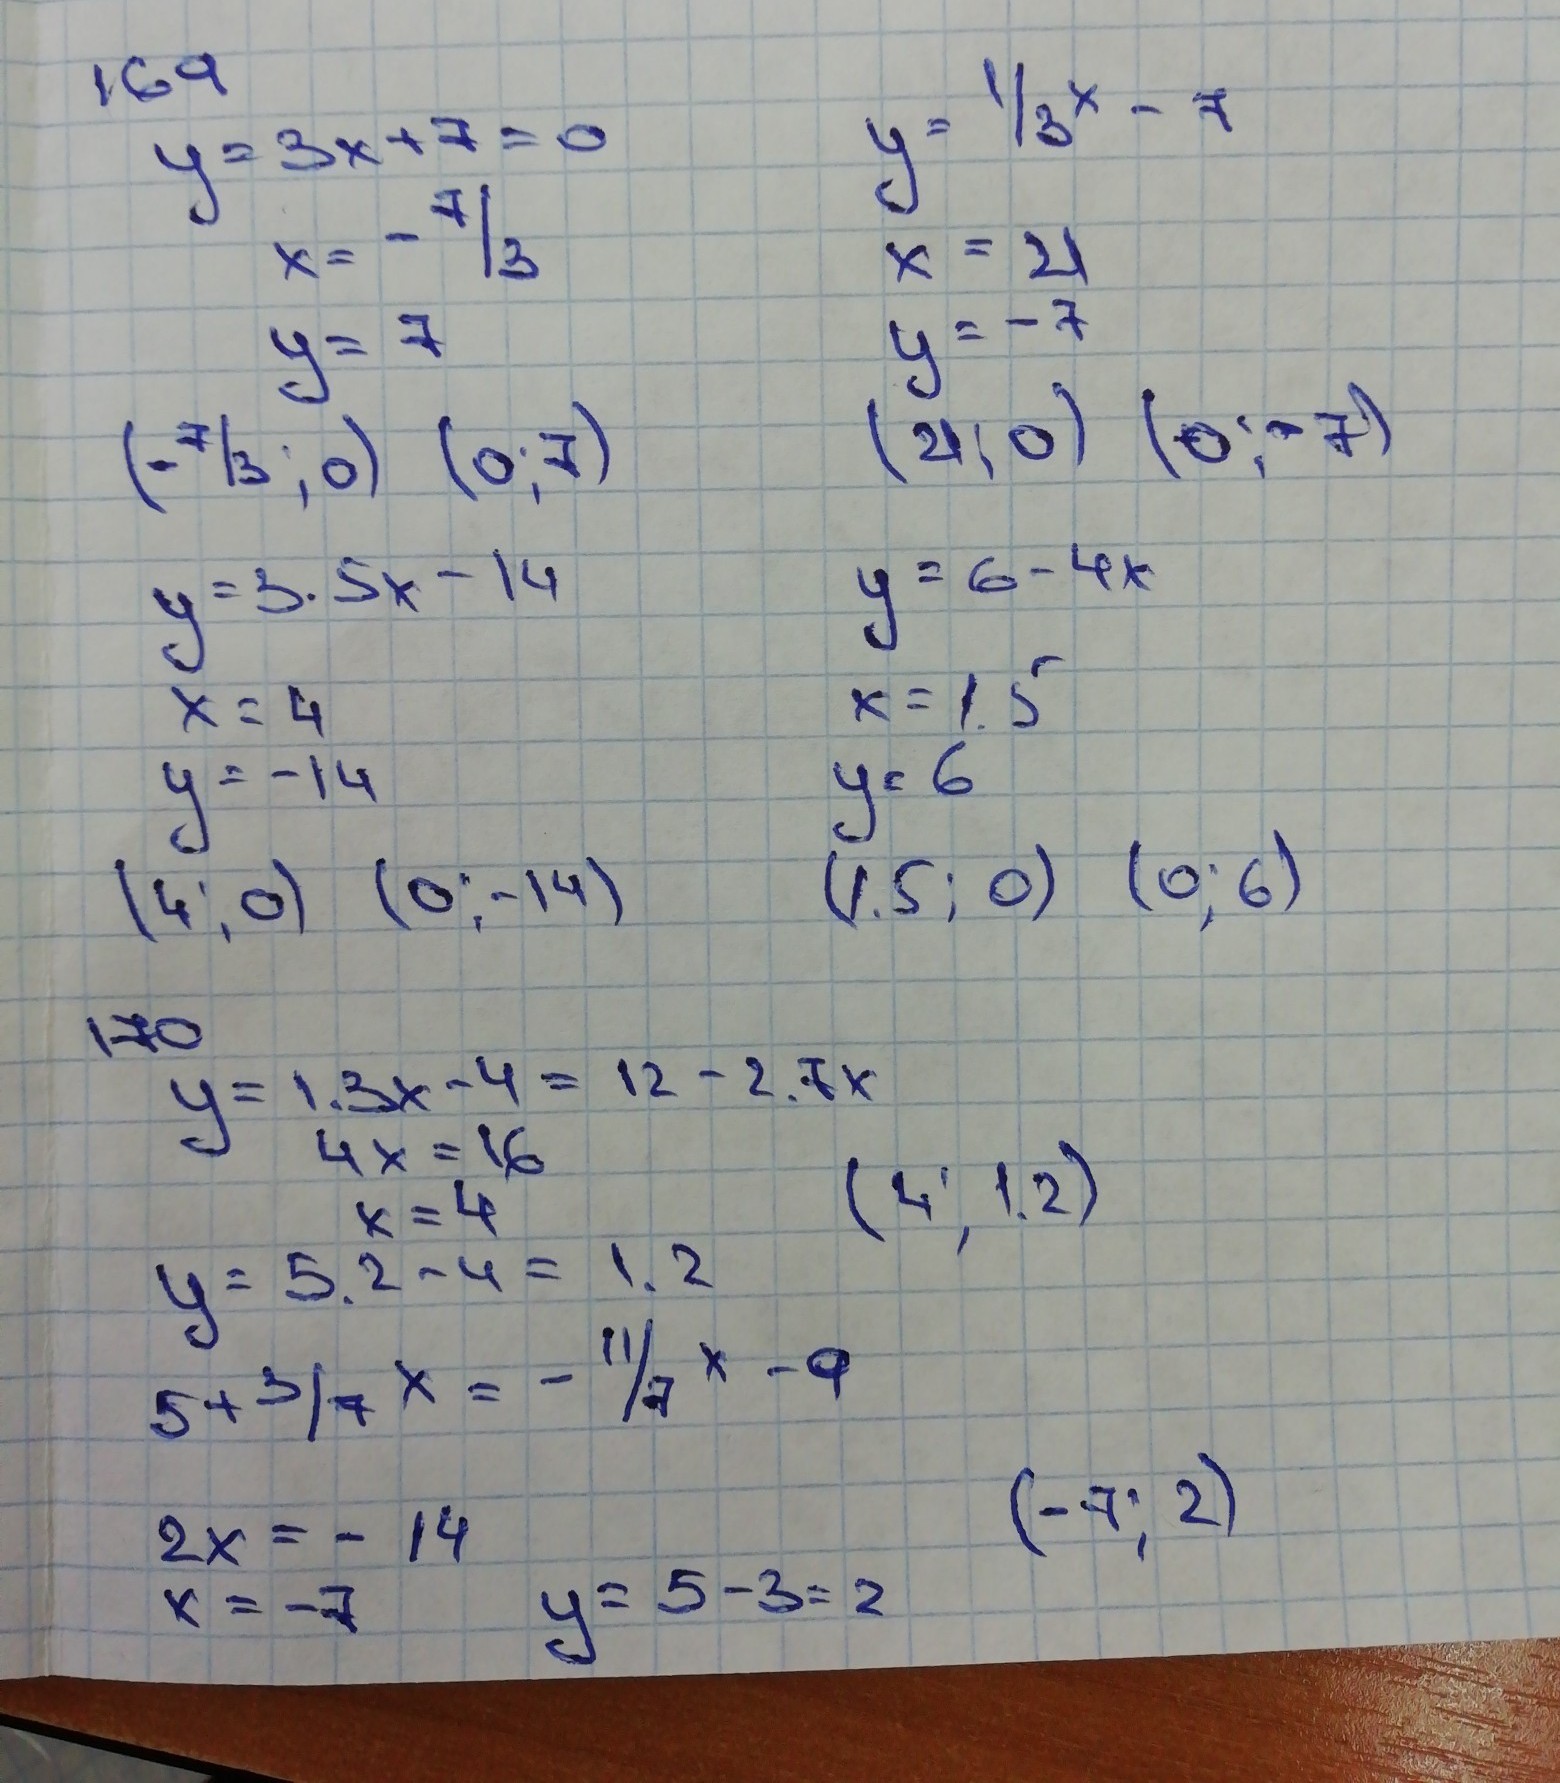 169
y = 3x + 7 = 0
x = - 7/3
y = 7
(-7/3; 0) (0; 7)
y = 1/3 x - 7
x = 21
y = -7
(21; 0) (0; -7)
y = 3.5x - 14
x = 4
y = -14
(4; 0) (0; -14)
y = 6 - 4x
x = 1.5
y = 6
(1.5; 0) (0; 6)
170
y = 1.3x - 4 = 12 - 2.7x
4x = 16
x = 4
(4; 1.2)
y = 5.2 - 4 = 1.2
5 + 3/7 x = - 11/7 x - 9
2x = - 14
(-7; 2)
x = -7 y = 5 - 3 = 2